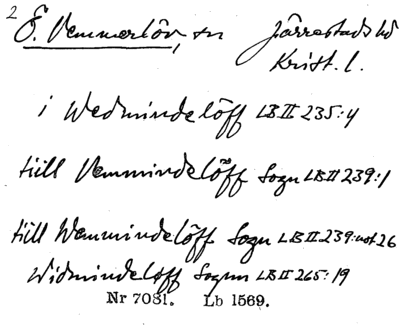 2
Ö. Vemmerlöv, sn Järrestads hd
Krist. l.
i Wedmindelöff LB II 235:4
tiill Vemmindelöff Sogn LB II 239:1
tiill Wemmindelöff Sogn LB II 239: not 26
Widmindeloff Sognn LB II 265:19
Nr 7081. Lb 1569.